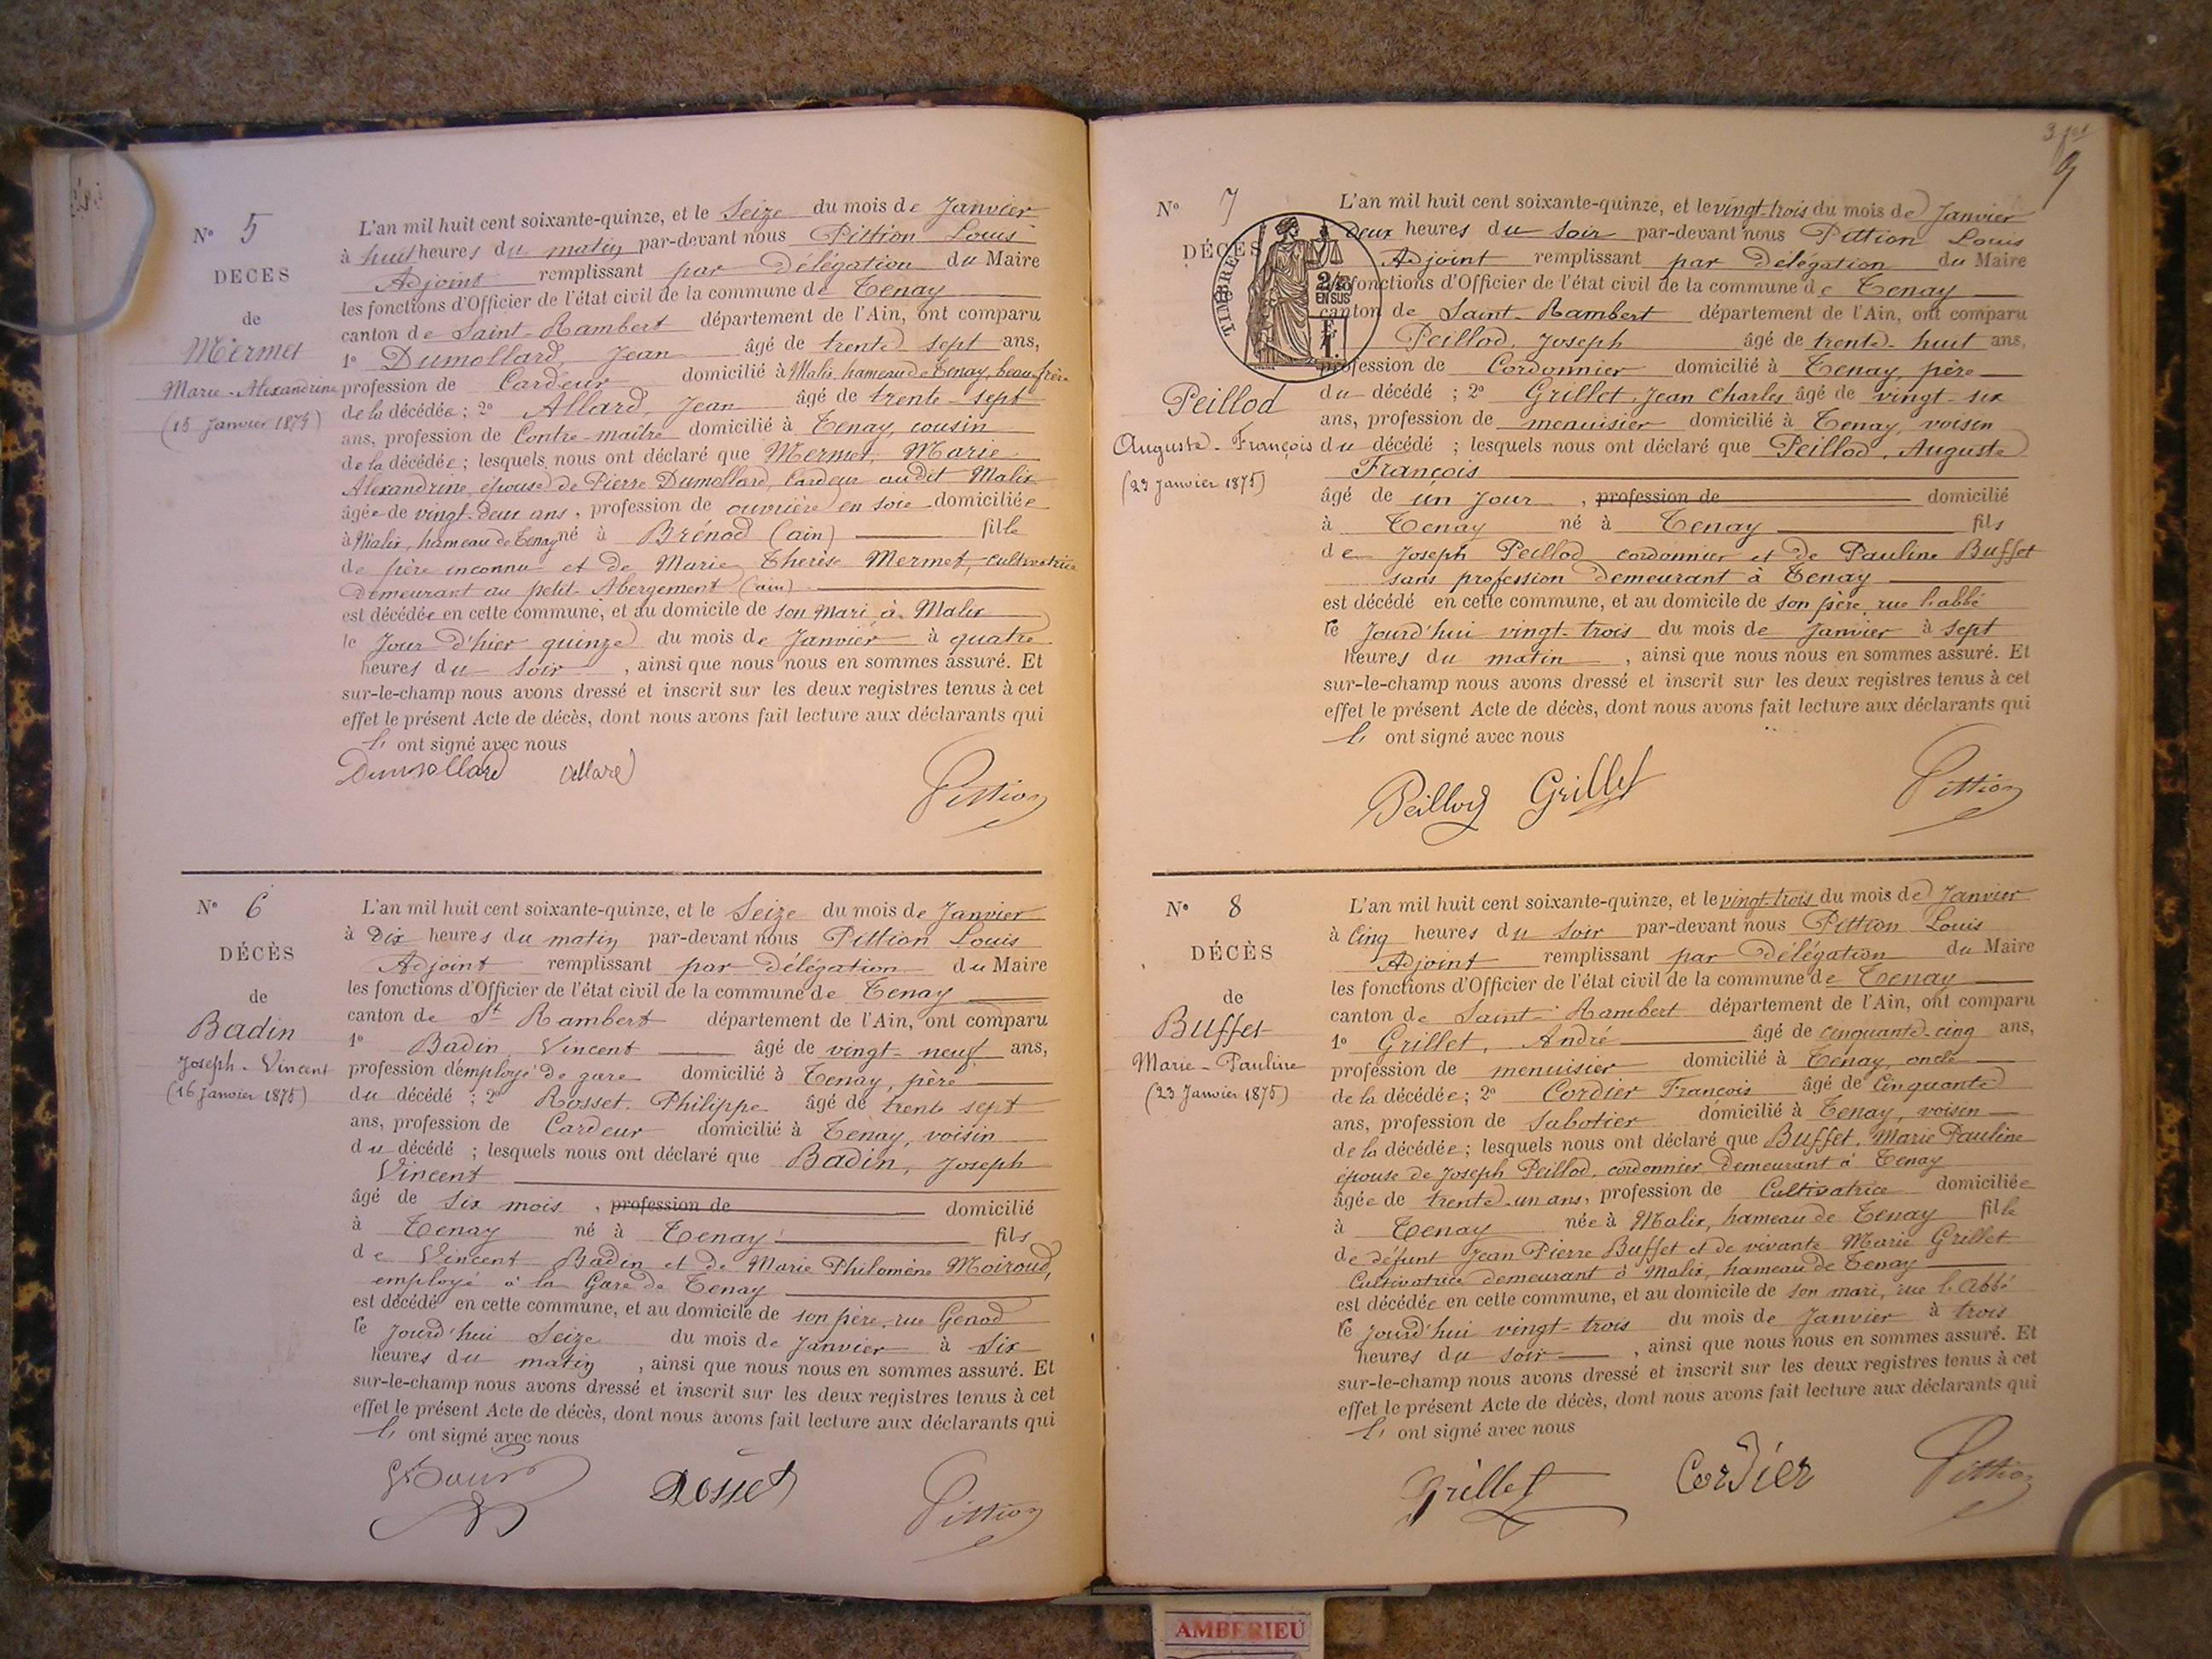 N° 5
DÉCÈS
de
Mermet
Marie-Alexandrine
(15 Janvier 1875)
L'an mil huit cent soixante-quinze, et le Seize du mois de Janvier
à huit heures du matin par-devant nous Pittion Louis
Adjoint remplissant par Délégation du Maire
les fonctions d'Officier de l'état civil de la commune de Tenay
canton de Saint-Rambert département de l'Ain, ont comparu
1° Dumollard, Jean âgé de trente-sept ans,
profession de Cardeur domicilié à Malix, hameau de Tenay, beau frère
de la décédée ; 2° Allard, Jean âgé de trente-sept
ans, profession de Contre-maître domicilié à Tenay, cousin
de la décédée ; lesquels nous ont déclaré que Mermet, Marie
Alexandrine, épouse de Pierre Dumollard, Cardeur audit Malix
âgée de vingt-deux ans, profession de ouvrière en soie domiciliée
à Malix, hameau de Tenay né à Brénod (ain) fille
de père inconnu et de Marie Therèse Mermet, cultivatrice
Demeurant au petit-Abergement (ain)
est décédée en cette commune, et au domicile de son Mari à Malix
le Jour d'hier quinze du mois de Janvier à quatre
heures du soir, ainsi que nous nous en sommes assuré. Et
sur-le-champ nous avons dressé et inscrit sur les deux registres tenus à cet
effet le présent Acte de décès, dont nous avons fait lecture aux déclarants qui
l' ont signé avec nous
Dumollard Allard Pittion
N° 6
DÉCÈS
de
Badin
Joseph-Vincent
(16 Janvier 1875)
L'an mil huit cent soixante-quinze, et le Seize du mois de Janvier
à Dix heures du matin par-devant nous Pittion Louis
Adjoint remplissant par Délégation du Maire
les fonctions d'Officier de l'état civil de la commune de Tenay
canton de St Rambert département de l'Ain, ont comparu
1° Badin Vincent âgé de vingt-neuf ans,
profession d'employé de gare domicilié à Tenay, père
du décédé ; 2° Rosset Philippe âgé de trente sept
ans, profession de Cardeur domicilié à Tenay, voisin
du décédé ; lesquels nous ont déclaré que Badin, Joseph
Vincent
âgé de six mois, profession de domicilié
à Tenay né à Tenay fils
de Vincent Badin et de Marie Philomène Moiroud,
employé à la Gare de Tenay
est décédé en cette commune, et au domicile de son père, rue Genod
le Jourd'hui Seize du mois de Janvier à Six
heures du matin, ainsi que nous nous en sommes assuré. Et
sur-le-champ nous avons dressé et inscrit sur les deux registres tenus à cet
effet le présent Acte de décès, dont nous avons fait lecture aux déclarants qui
l' ont signé avec nous
Rosset Pittion
3 fet
9
N° 7
DÉCÈS
TIMBRE
2/10 EN SUS
F.
1.
Peillod
Auguste-François
(23 Janvier 1875)
L'an mil huit cent soixante-quinze, et le vingt-trois du mois de Janvier
Deux heures du soir par-devant nous Pittion Louis
Adjoint remplissant par Délégation du Maire
fonctions d'Officier de l'état civil de la commune de Tenay
canton de Saint-Rambert département de l'Ain, ont comparu
Peillod, Joseph âgé de trente-huit ans,
profession de Cordonnier domicilié à Tenay, père
du décédé ; 2° Grillet, Jean Charles âgé de vingt-six
ans, profession de menuisier domicilié à Tenay, voisin
du décédé ; lesquels nous ont déclaré que Peillod, Auguste
François
âgé de un Jour, profession de domicilié
à Tenay né à Tenay fils
de Joseph Peillod cordonnier et de Pauline Buffet
sans profession demeurant à Tenay
est décédé en cette commune, et au domicile de son père, rue l'abbé
le Jourd'hui vingt-trois du mois de Janvier à sept
heures du matin, ainsi que nous nous en sommes assuré. Et
sur-le-champ nous avons dressé et inscrit sur les deux registres tenus à cet
effet le présent Acte de décès, dont nous avons fait lecture aux déclarants qui
l' ont signé avec nous
Peillod Grillet Pittion
N° 8
DÉCÈS
de
Buffet
Marie-Pauline
(23 Janvier 1875)
L'an mil huit cent soixante-quinze, et le vingt-trois du mois de Janvier
à Cinq heures du soir par-devant nous Pittion Louis
Adjoint remplissant par Délégation du Maire
les fonctions d'Officier de l'état civil de la commune de Tenay
canton de Saint-Rambert département de l'Ain, ont comparu
1° Grillet, André âgé de cinquante-cinq ans,
profession de menuisier domicilié à Tenay, oncle
de la décédée ; 2° Cordier François âgé de Cinquante
ans, profession de Sabotier domicilié à Tenay, voisin
de la décédée ; lesquels nous ont déclaré que Buffet, Marie Pauline
épouse de Joseph Peillod, cordonnier, Demeurant à Tenay
âgée de trente-un ans, profession de Cultivatrice domiciliée
à Tenay née à Malix, hameau de Tenay fille
de défunt Jean Pierre Buffet et de vivante Marie Grillet
Cultivatrice demeurant à Malix, hameau de Tenay
est décédée en cette commune, et au domicile de son mari, rue l'Abbé
le Jourd'hui vingt-trois du mois de Janvier à trois
heures du soir, ainsi que nous nous en sommes assuré. Et
sur-le-champ nous avons dressé et inscrit sur les deux registres tenus à cet
effet le présent Acte de décès, dont nous avons fait lecture aux déclarants qui
l' ont signé avec nous
Grillet Cordier Pittion
AMBERIEU